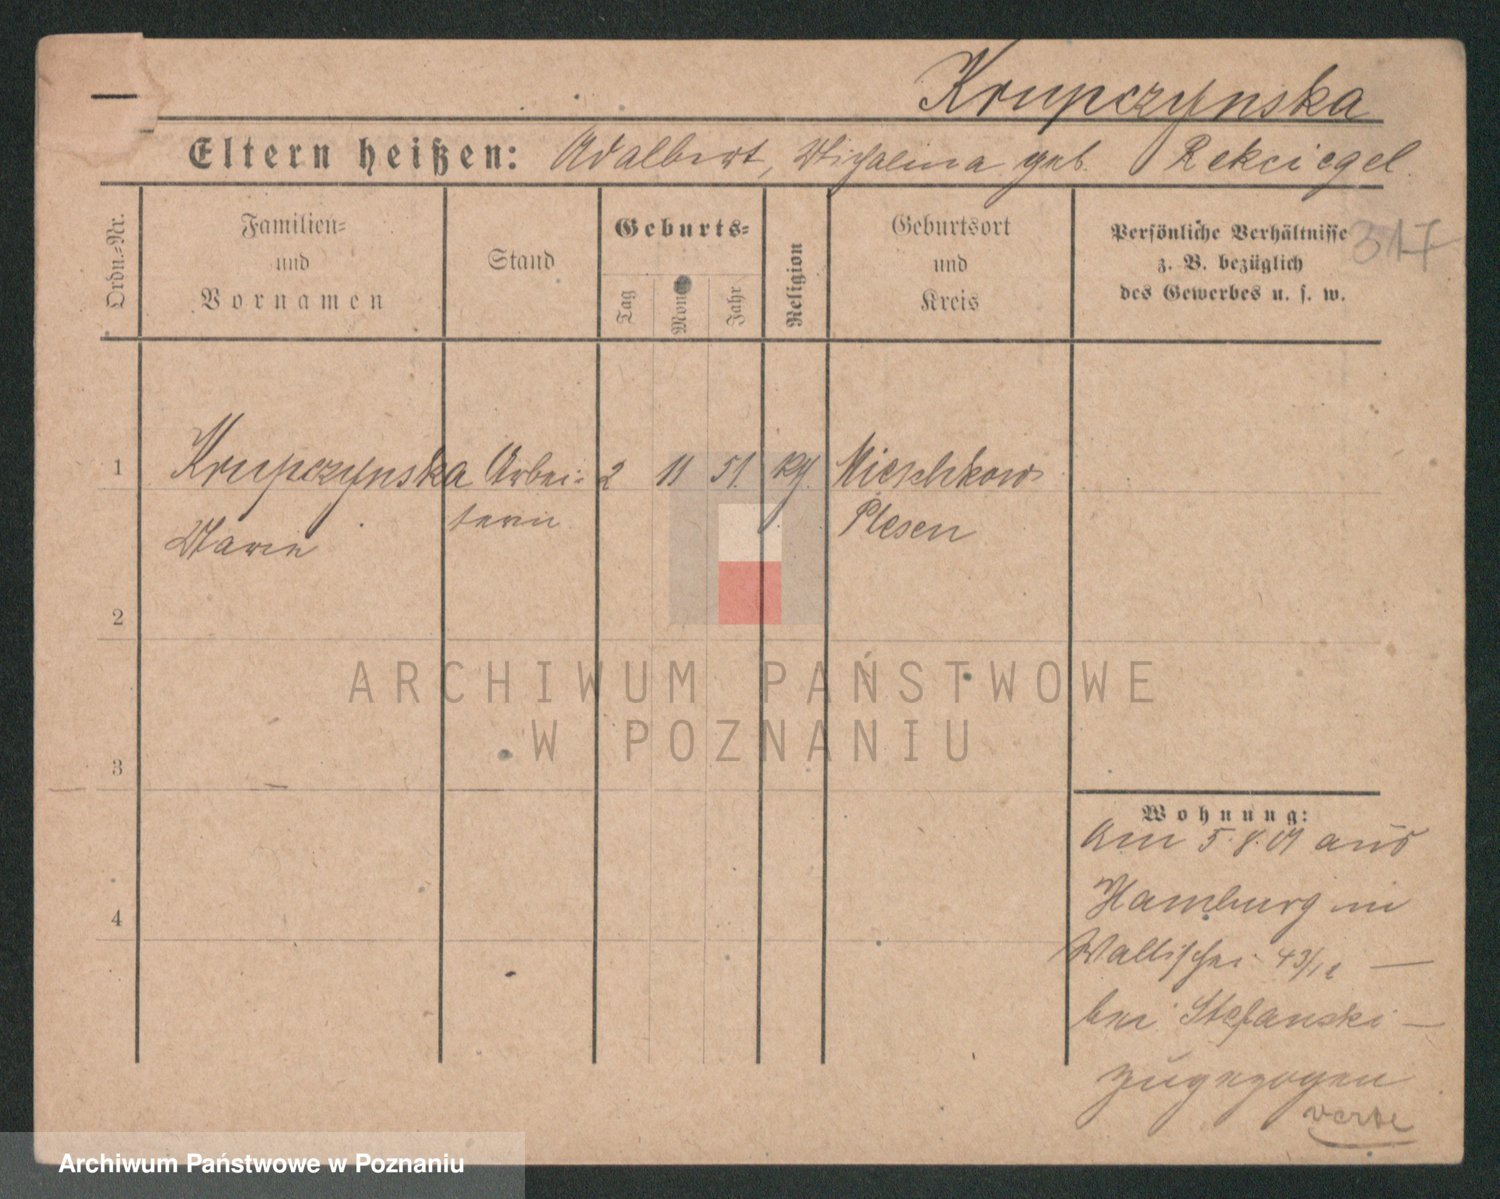 Krupczynska
Eltern heißen: Adalbert, Michalina geb. Rekciegel.
Ordn.-Nr.
Familien-
und
Vornamen
Stand
Geburts-
Tag
Monat
Jahr
Religion
Geburtsort
und
Kreis
Persönliche Verhältnisse
z. B. bezüglich
des Gewerbes u. s. w.
317
1 Krupczynska Arbei- 2 11 51. Mieschkow
Marie terin Plesen
2
3
4
Wohnung:
Am 5.8.09 aus
Hamburg in
Wallischei 43/
bei Stefanski —
zugezogen
ARCHIWUM PAŃSTWOWE
W POZNANIU
Archiwum Państwowe w Poznaniu